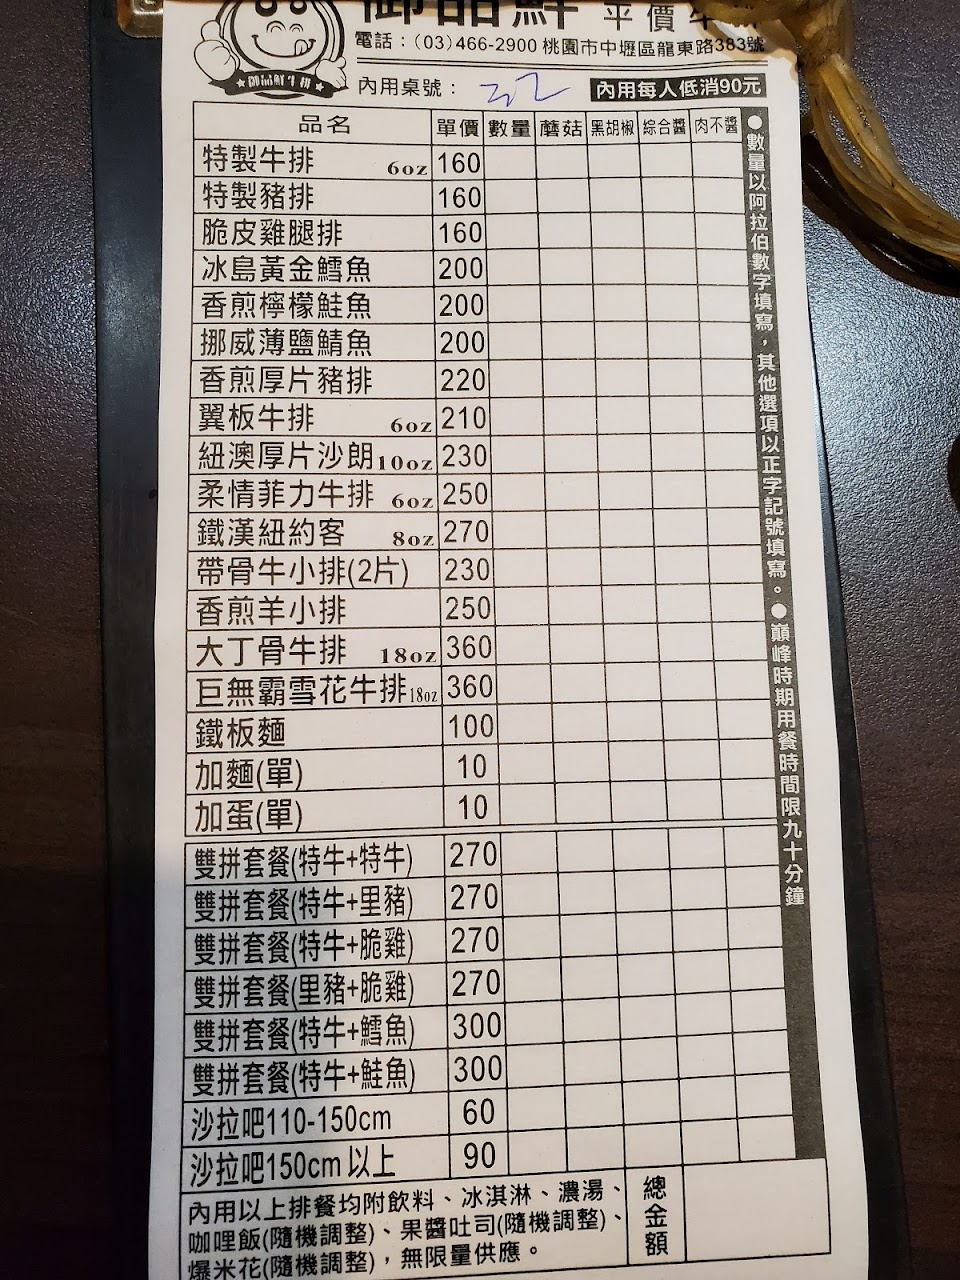 御品鮮 平價牛排
電話：(03)466-2900 桃園市中壢區龍東路383號
★御品鮮牛排★
內用桌號： 內用每人低消90元
品名 單價 數量 蘑菇 黑胡椒 綜合醬 肉不醬
特製牛排 6oz 160
特製豬排 160
脆皮雞腿排 160
冰島黃金鱈魚 200
香煎檸檬鮭魚 200
挪威薄鹽鯖魚 200
香煎厚片豬排 220
翼板牛排 6oz 210
紐澳厚片沙朗 10oz 230
柔情菲力牛排 6oz 250
鐵漢紐約客 8oz 270
帶骨牛小排(2片) 230
香煎羊小排 250
大丁骨牛排 18oz 360
巨無霸雪花牛排 18oz 360
鐵板麵 100
加麵(單) 10
加蛋(單) 10
雙拼套餐(特牛+特牛) 270
雙拼套餐(特牛+里豬) 270
雙拼套餐(特牛+脆雞) 270
雙拼套餐(里豬+脆雞) 270
雙拼套餐(特牛+鱈魚) 300
雙拼套餐(特牛+鮭魚) 300
沙拉吧110-150cm 60
沙拉吧150cm以上 90
內用以上排餐均附飲料、冰淇淋、濃湯、
咖哩飯(隨機調整)、果醬吐司(隨機調整)、
爆米花(隨機調整)，無限量供應。
總金額
●數量以阿拉伯數字填寫，其他選項以正字記號填寫。●巔峰時期用餐時間限九十分鐘